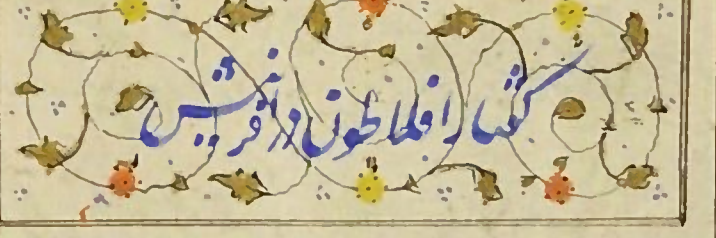 کفتار افلاطون در افرینش